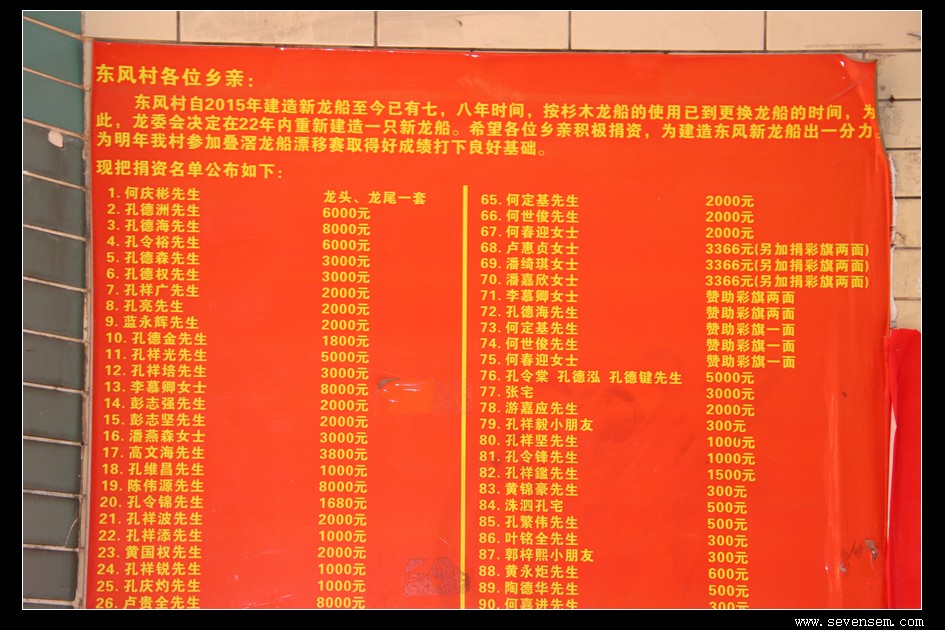 东风村各位乡亲：
东风村自2015年建造新龙船至今已有七，八年时间，按杉木龙船的使用已到更换龙船的时间，为
此，龙委会决定在22年内重新建造一只新龙船。希望各位乡亲积极捐资，为建造东风新龙船出一分力。
为明年我村参加叠滘龙船漂移赛取得好成绩打下良好基础。
现把捐资名单公布如下：
1. 何庆彬先生 龙头、龙尾一套
2. 孔德洲先生 6000元
3. 孔德海先生 8000元
4. 孔令裕先生 6000元
5. 孔德森先生 3000元
6. 孔德权先生 3000元
7. 孔祥广先生 2000元
8. 孔亮先生 2000元
9. 蓝永辉先生 2000元
10. 孔德金先生 1800元
11. 孔祥光先生 5000元
12. 孔祥培先生 3000元
13. 李慕卿女士 8000元
14. 彭志强先生 2000元
15. 彭志坚先生 2000元
16. 潘燕森女士 3000元
17. 高文海先生 3800元
18. 孔维昌先生 1000元
19. 陈伟源先生 8000元
20. 孔令锦先生 1680元
21. 孔祥波先生 2000元
22. 孔祥添先生 1000元
23. 黄国权先生 2000元
24. 孔祥锐先生 1000元
25. 孔庆灼先生 1000元
26. 卢贵全先生 8000元
65. 何定基先生 2000元
66. 何世俊先生 2000元
67. 何春迎女士 2000元
68. 卢惠贞女士 3366元(另加捐彩旗两面)
69. 潘绮琪女士 3366元(另加捐彩旗两面)
70. 潘嘉欣女士 3366元(另加捐彩旗两面)
71. 李慕卿女士 赞助彩旗两面
72. 孔德海先生 赞助彩旗两面
73. 何定基先生 赞助彩旗一面
74. 何世俊先生 赞助彩旗一面
75. 何春迎女士 赞助彩旗一面
76. 孔令棠 孔德泓 孔德键先生 5000元
77. 张宅 3000元
78. 游嘉应先生 2000元
79. 孔祥毅小朋友 300元
80. 孔祥坚先生 1000元
81. 孔令锋先生 1000元
82. 孔祥鑑先生 1500元
83. 黄锦豪先生 300元
84. 洙泗孔宅 500元
85. 孔繁伟先生 500元
86. 叶铭全先生 300元
87. 郭梓熙小朋友 300元
88. 黄永炬先生 600元
89. 陶德华先生 500元
90. 何嘉进先生 300元
www.sevensem.com